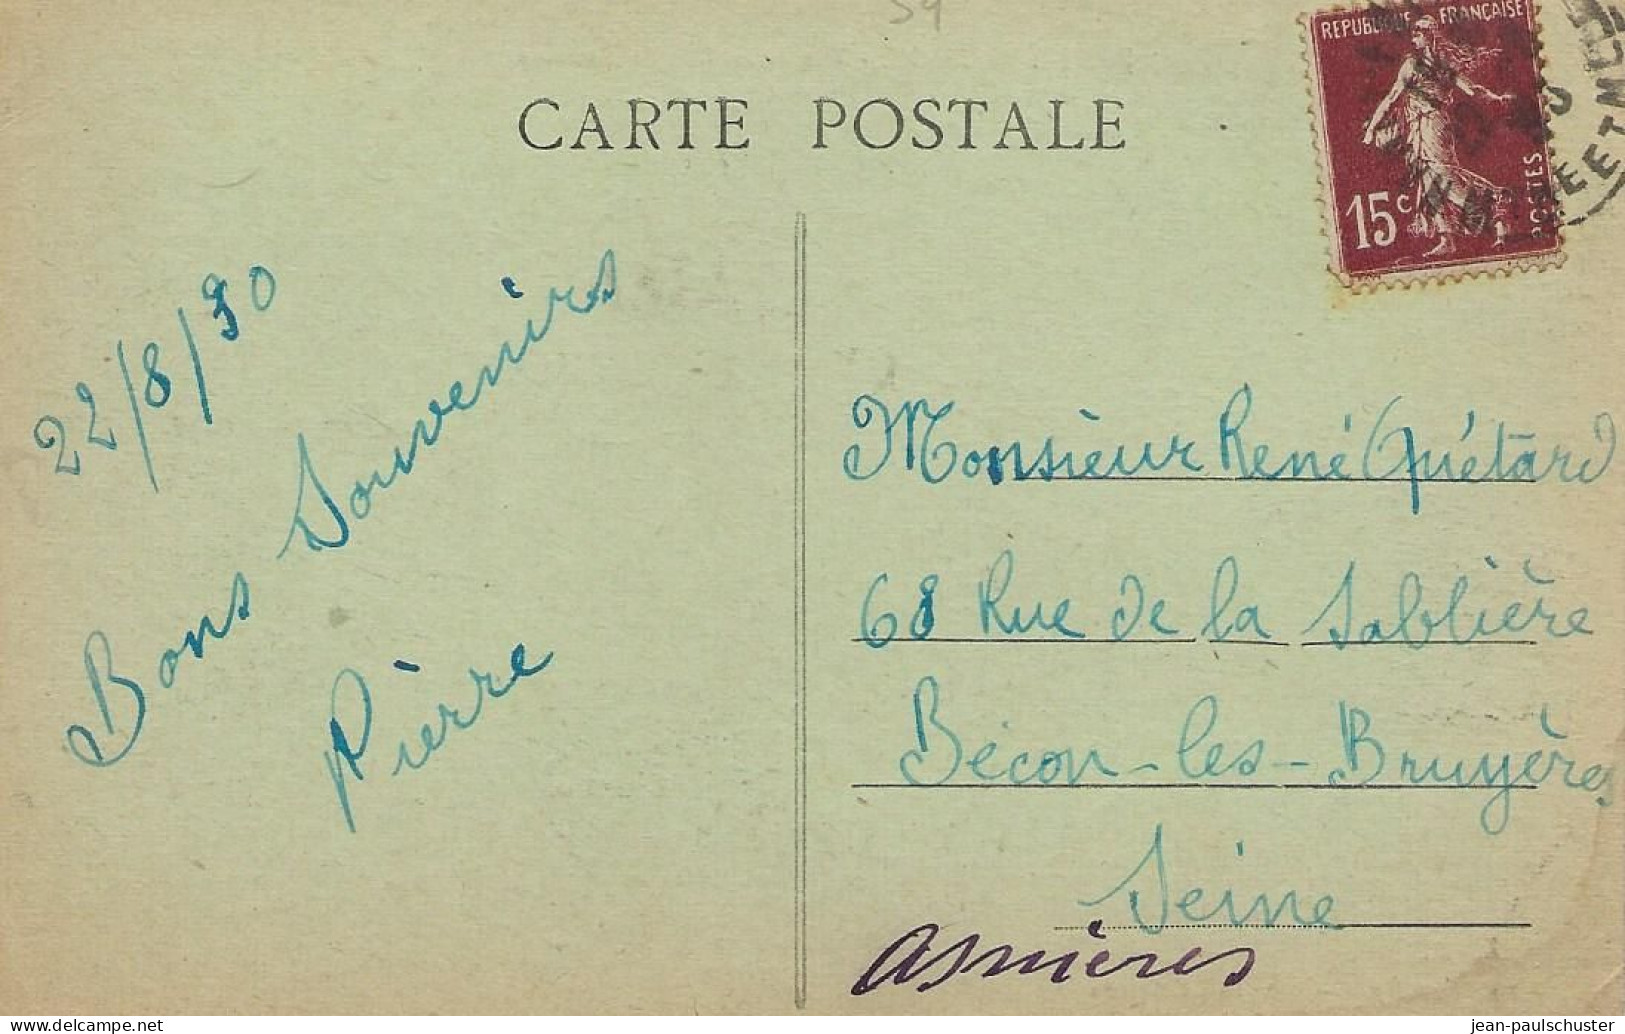 59
CARTE POSTALE
REPUBLIQUE FRANÇAISE
15c
POSTES
22/8/30
Bons Souvenirs
Pièrre
Monsieur René Quétard
68 Rue de la Sablière
Bécon-les-Bruyères
Seine
asnières
delcampe.net
jean-paulschuster